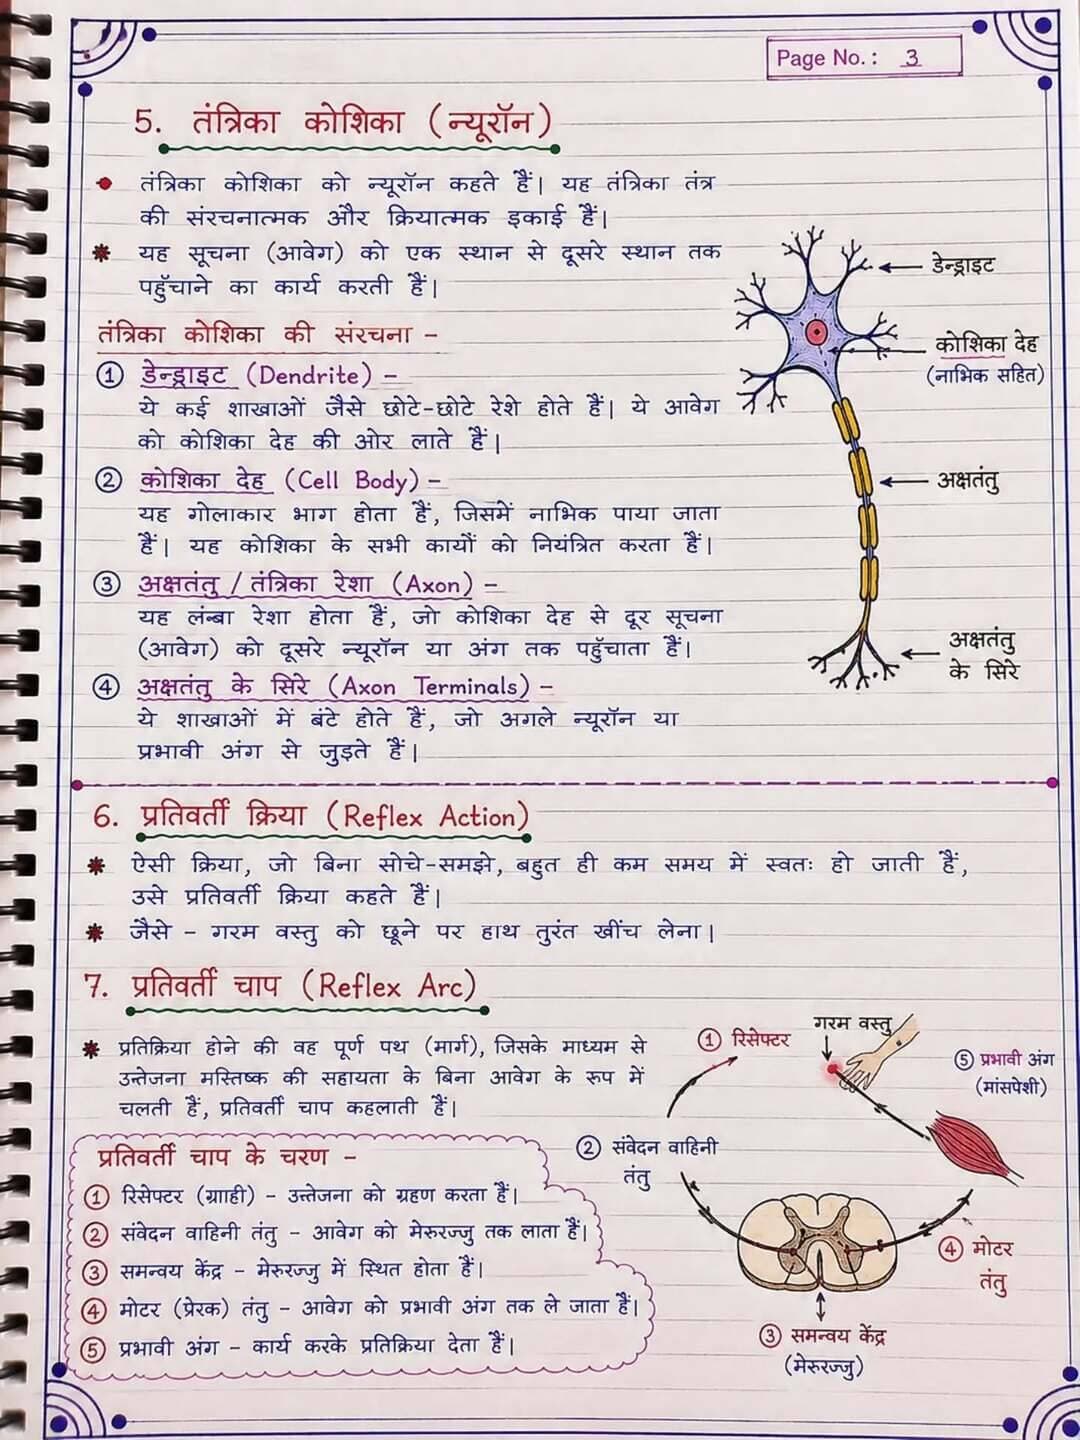 Page No.: 3
5. तंत्रिका कोशिका (न्यूरॉन)
तंत्रिका कोशिका को न्यूरॉन कहते हैं। यह तंत्रिका तंत्र
की संरचनात्मक और क्रियात्मक इकाई हैं।
यह सूचना (आवेग) को एक स्थान से दूसरे स्थान तक
पहुँचाने का कार्य करती हैं।
तंत्रिका कोशिका की संरचना –
① डेन्ड्राइट (Dendrite) –
ये कई शाखाओं जैसे छोटे-छोटे रेशे होते हैं। ये आवेग
को कोशिका देह की ओर लाते हैं।
② कोशिका देह (Cell Body) –
यह गोलाकार भाग होता हैं, जिसमें नाभिक पाया जाता
हैं। यह कोशिका के सभी कार्यों को नियंत्रित करता हैं।
③ अक्षतंतु / तंत्रिका रेशा (Axon) –
यह लंबा रेशा होता हैं, जो कोशिका देह से दूर सूचना
(आवेग) को दूसरे न्यूरॉन या अंग तक पहुँचाता हैं।
④ अक्षतंतु के सिरे (Axon Terminals) –
ये शाखाओं में बंटे होते हैं, जो अगले न्यूरॉन या
प्रभावी अंग से जुड़ते हैं।
डेन्ड्राइट
कोशिका देह
(नाभिक सहित)
अक्षतंतु
अक्षतंतु
के सिरे
6. प्रतिवर्ती क्रिया (Reflex Action)
ऐसी क्रिया, जो बिना सोचे-समझे, बहुत ही कम समय में स्वतः हो जाती हैं,
उसे प्रतिवर्ती क्रिया कहते हैं।
जैसे – गरम वस्तु को छूने पर हाथ तुरंत खींच लेना।
7. प्रतिवर्ती चाप (Reflex Arc)
प्रतिक्रिया होने की वह पूर्ण पथ (मार्ग), जिसके माध्यम से
उत्तेजना मस्तिष्क की सहायता के बिना आवेग के रूप में
चलती हैं, प्रतिवर्ती चाप कहलाती हैं।
प्रतिवर्ती चाप के चरण –
① रिसेप्टर (ग्राही) – उत्तेजना को ग्रहण करता हैं।
② संवेदन वाहिनी तंतु – आवेग को मेरुरज्जु तक लाता हैं।
③ समन्वय केंद्र – मेरुरज्जु में स्थित होता हैं।
④ मोटर (प्रेरक) तंतु – आवेग को प्रभावी अंग तक ले जाता हैं।
⑤ प्रभावी अंग – कार्य करके प्रतिक्रिया देता हैं।
गरम वस्तु
① रिसेप्टर
⑤ प्रभावी अंग
(मांसपेशी)
② संवेदन वाहिनी
तंतु
④ मोटर
तंतु
③ समन्वय केंद्र
(मेरुरज्जु)